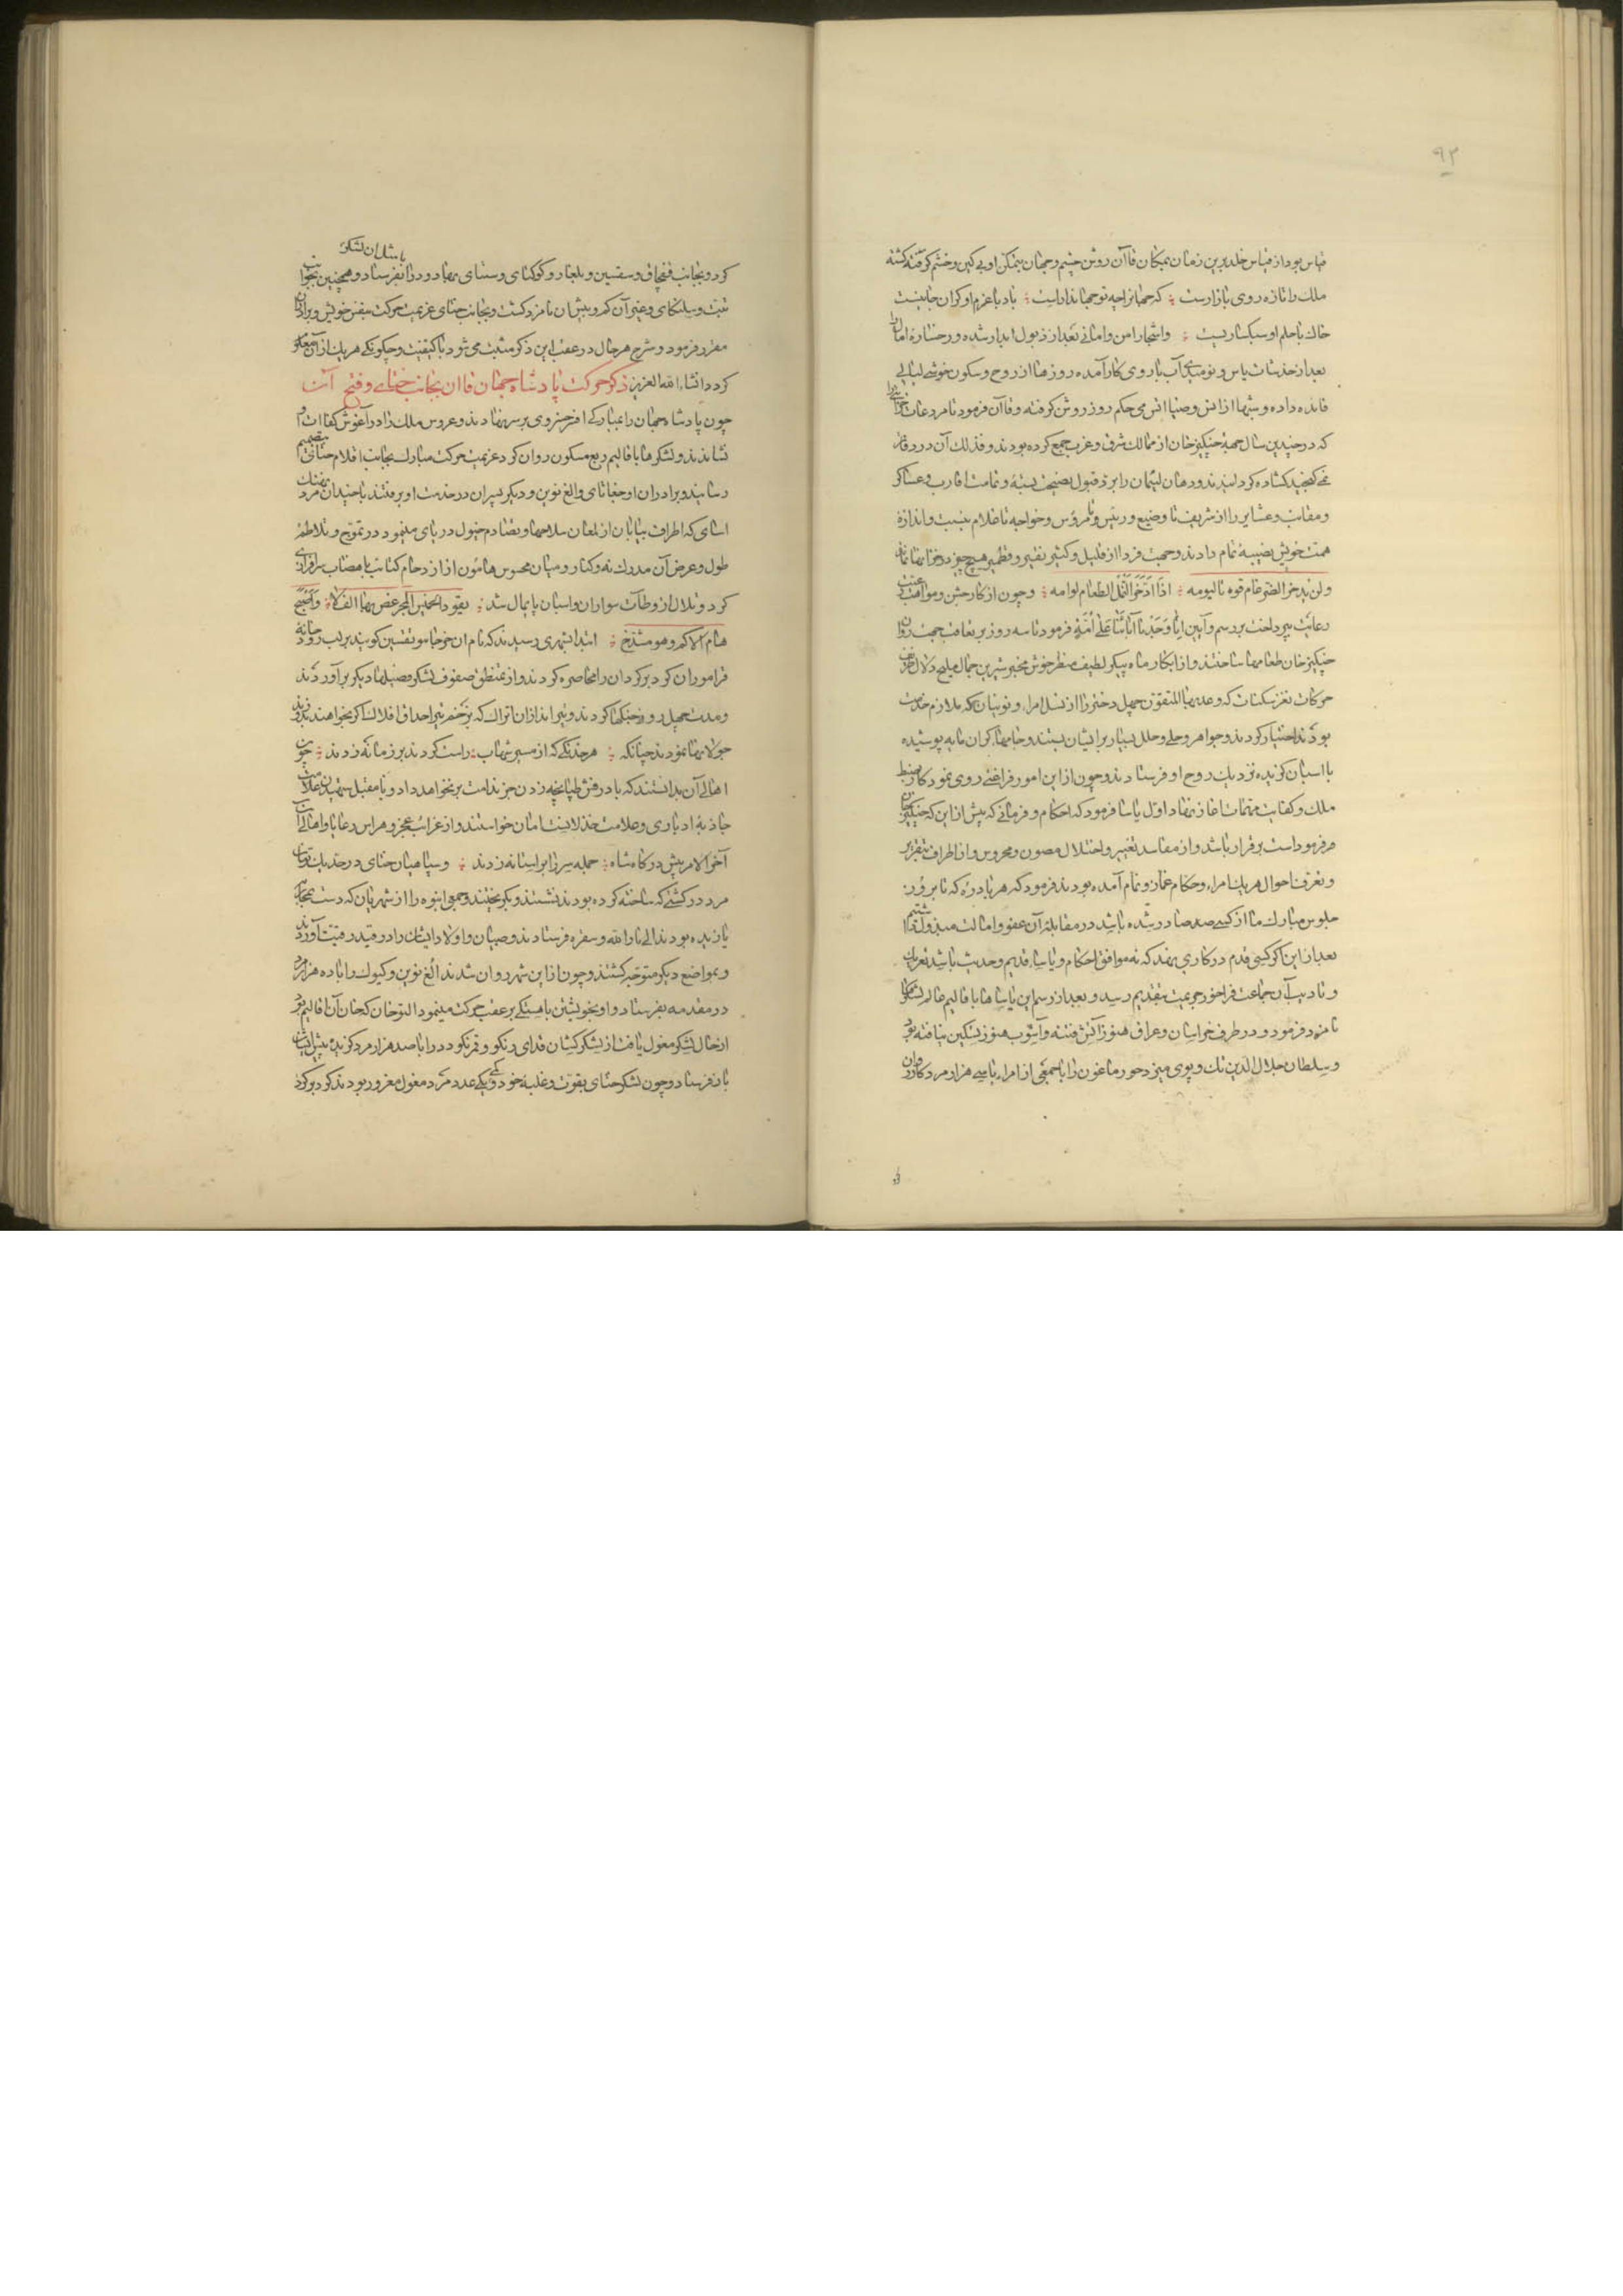 ۹۲
قیاس بود از قیاس خلد برین زمان بمکان قاآن روشن چشم و جهان بتمکن او بی کین و خشم کرفته کشته
ملک را تازه روی بازارست ؛ که جهانرا چه تو جهاندارست ؛ باد با عزم او کران جانیست
خاک با حلم او سبکساریست ؛ و اشجار امن و امانی بعد از ذبول ابدار شده و رخساره امال را
بعد از خدشات یاس و نومیدی آب با روی کار آمده روزها از روح و سکون خوشی لیالی
فایده داده و شبها از انس و ضیا انس می حکم روز روشن کرفته و قاآن فرمود تا مردعات خزاین را
که در چندین سال جهة چنکیز خان از ممالک شرق و غرب جمع کرده بودند و فذلک آن در دفاتر
نمی کنجید کشاده کردانیدند و دهان لئیمان را برد قبول نصیحت بسته و تمامت اقارب و عساکر
و مقانب و عشایر را از شریف تا وضیع و رئیس و مرؤس و خواجه تا غلام بنسبت و اندازهٔ
همت خویش نصیبهٔ تمام دادند و جهت فردا از قلیل و کثیر نقیر و قطمیر هیچ چیز در خزانها نماند
ولن یدخر الضرغام قوه نالیومه ؛ اذا ادّخر النمل الطعام لوامه ؛ و چون از کار جشن و مواهب عنیت
رعایت بپرداخت بر رسم و آیین انا وجدنا آباءنا علی امّة فرمود تا سه روز بر تعاقب جهت روان
چنکیز خان طعامها ساختند و از ابکار ماه پیکر لطیف منظر خوش مخبر شیرین جمال ملیح دلال ظریف
حرکات نغز سکنات که وعد بها المتقون چهل دختر را از نسل امراء و نوینان که ملازم خدمت
بودند اختیار کردند و جواهر و حلی و حلل بسیار بر ایشان بستند و جامهاء کران مایه پوشیده
با اسبان کزیده نزدیک روح او فرستادند و چون از این امور فراغتی روی نمود کار ضبط
ملک و کفایت مهمات اغاز نهاد اول یاسا فرمود که احکام و فرمانی که پیش از این که چنکیز خان
فرموداست بر قرار باشد و از مفاسد تغییر و اختلال مصون و محروس و از اطراف بتقریر
و تعرف احوال هر یک امراء و حکام غماز و نمام آمده بودند فرمود که هر بادره که تا بروز
جلوس مبارک ما از کسی صدصادر شده باشد در مقابلهٔ آن عفو و امالت مبذول داشتیم اما
بعد از این اکر کسی قدم در کاری نهد که نه موافق احکام و یاساء قدیم و حدیث باشد تعریک
و تادیب آن جماعت فراخور جریمت بتقدیم رسید و بعد از رسم این یاساها باقالیم عالم لشکرها
نامزد فرمود و در طرف خراسان و عراق هنوز آتش فتنه و آشوب هنوز تسکین نیافته بود
و سلطان جلال الدین تک و پوی میزد جورماغون را با جمعی از امراء با سی هزار مرد کاردان
با مثل آن لشکر
کرد و بجانب قفچاق و سقسین و بلغار و کوکتای و سنتای بهادر را بفرستاد و همچنین بجوانب
تبت و سلنکای و غیر آن کم و بیش آن نامزد کشت و بجانب ختای عزیمت حرکت بنفس خویش و برادران
مقرر فرمود و شرح هر حال در عقب این ذکر مثبت می شود تا کیفیت و چکونکی هر یک از آن معلوم
کردد انشاء الله العزیز ذکر حرکت پادشاه جهان قاان بجانب ختای و فتح آن
چون پادشاه جهان را بمبارکی افسر خسروی بر سر نهادند و عروس ملک را در آغوش کفاات او
نشاندند و لشکرها باقالیم ربع مسکون روان کرد عزیمت حرکت مبارک بجانب اقلام ختائی بتصمیم
رسانید و برادران او جغاتای و الغ نوین و دیکر پسران در خدمت او برفتند با چندان مرد نهنک
اسای که اطراف بیابان از لمعان سلاحها و تصادم خیول دریای مینمود در تموج و تلاطم
طول و عرض آن مدرک نه و کنار و میان محسوس هامون از ازدحام کتایب با هضاب سرافرازی
کرد و تلال از وطآت سواران و اسبان پایمال شد ؛ یقود الخمیس المجر غص بها الفلا ؛ و اضحی
هام الاکم و هو مشدخ ؛ ابتدا بشهری رسیدند که نام ان خوجابو نقسین کویند بر لب رودخانهٔ
قراموران کرد بر کرد ان را محاصره کردند و از تمنطق صفوف لشکر فصیلهاء دیکر برآوردند
و مدت چهل روز جنکها کردند و تیراندازان اتراک که بزخم تیر احداق افلاک اکر بخواهند بدوزند
جولانها نمودند چنانکه ؛ هر خدنکی که از مسیر شهاب ؛ راست کردند بر زمانه زدند ؛ چون
اهالی آن بدانستند که با درفش طپانچه زدن جز ندامت بر نخواهد داد و با مقبل ستهیدن علامت
جاذبهٔ ادباری و علامت خذلانیت امان خواستند و از غرایب عجز و هراس رعایا و اهالی آن
آخر الامر پیش درکاه شاه ؛ جمله سر زابر استانه زدند ؛ و سپاهیان ختای در حد یک تومان
مرد در کشتی که ساخته کرده بودند نشستند و بکریختند و جمعی انبوه را از شهریان که دست بمجابا
یازیده بودند الی نار الله و سقره فرستادند و صبیان و اولاد ایشان را در قید رقیت آوردند
و بمواضع دیکر متوجه کشتند و چون از این شهر روان شدند الغ نوین و کیوک را با ده هزار مرد
در مقدمه بفرستاد و او بخویشتن باهستکی بر عقب حرکت مینمود التوخان که خان آن اقالیم بود
از حال لشکر مغول یافت از لشکرکشان قدای رنکو و قمرنکودر را با صد هزار مرد کزیده پیش ایشان
باز فرستاد و چون لشکر ختای بقوت و غلبهٔ خود و یکی عدد مرد مغول مغرور بودند کرد بر کرد